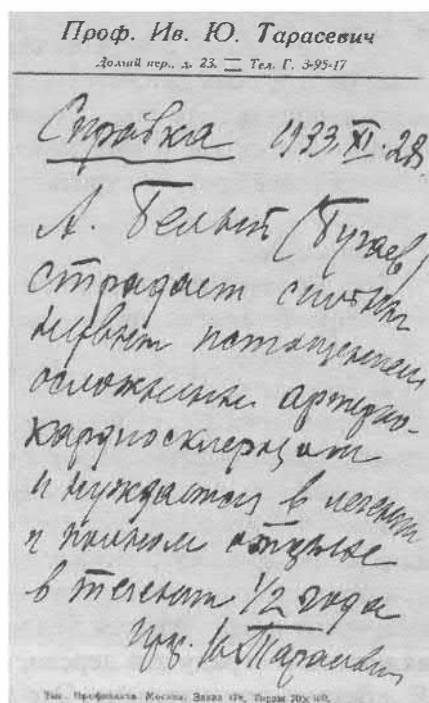 Проф. Ив. Ю. Тарасевич
Долгий пер., д. 23. — Тел. Г. 3-95-17
Справка 1933.XI.28
А. Белый (Бугаев)
страдает
нервным истощением
осложненным артерио-
кардиосклерозом
и нуждается в лечении
и полном отдыхе
в течении 1/2 года
Проф. Ив. Тарасевич
Москва. Заказ Тираж